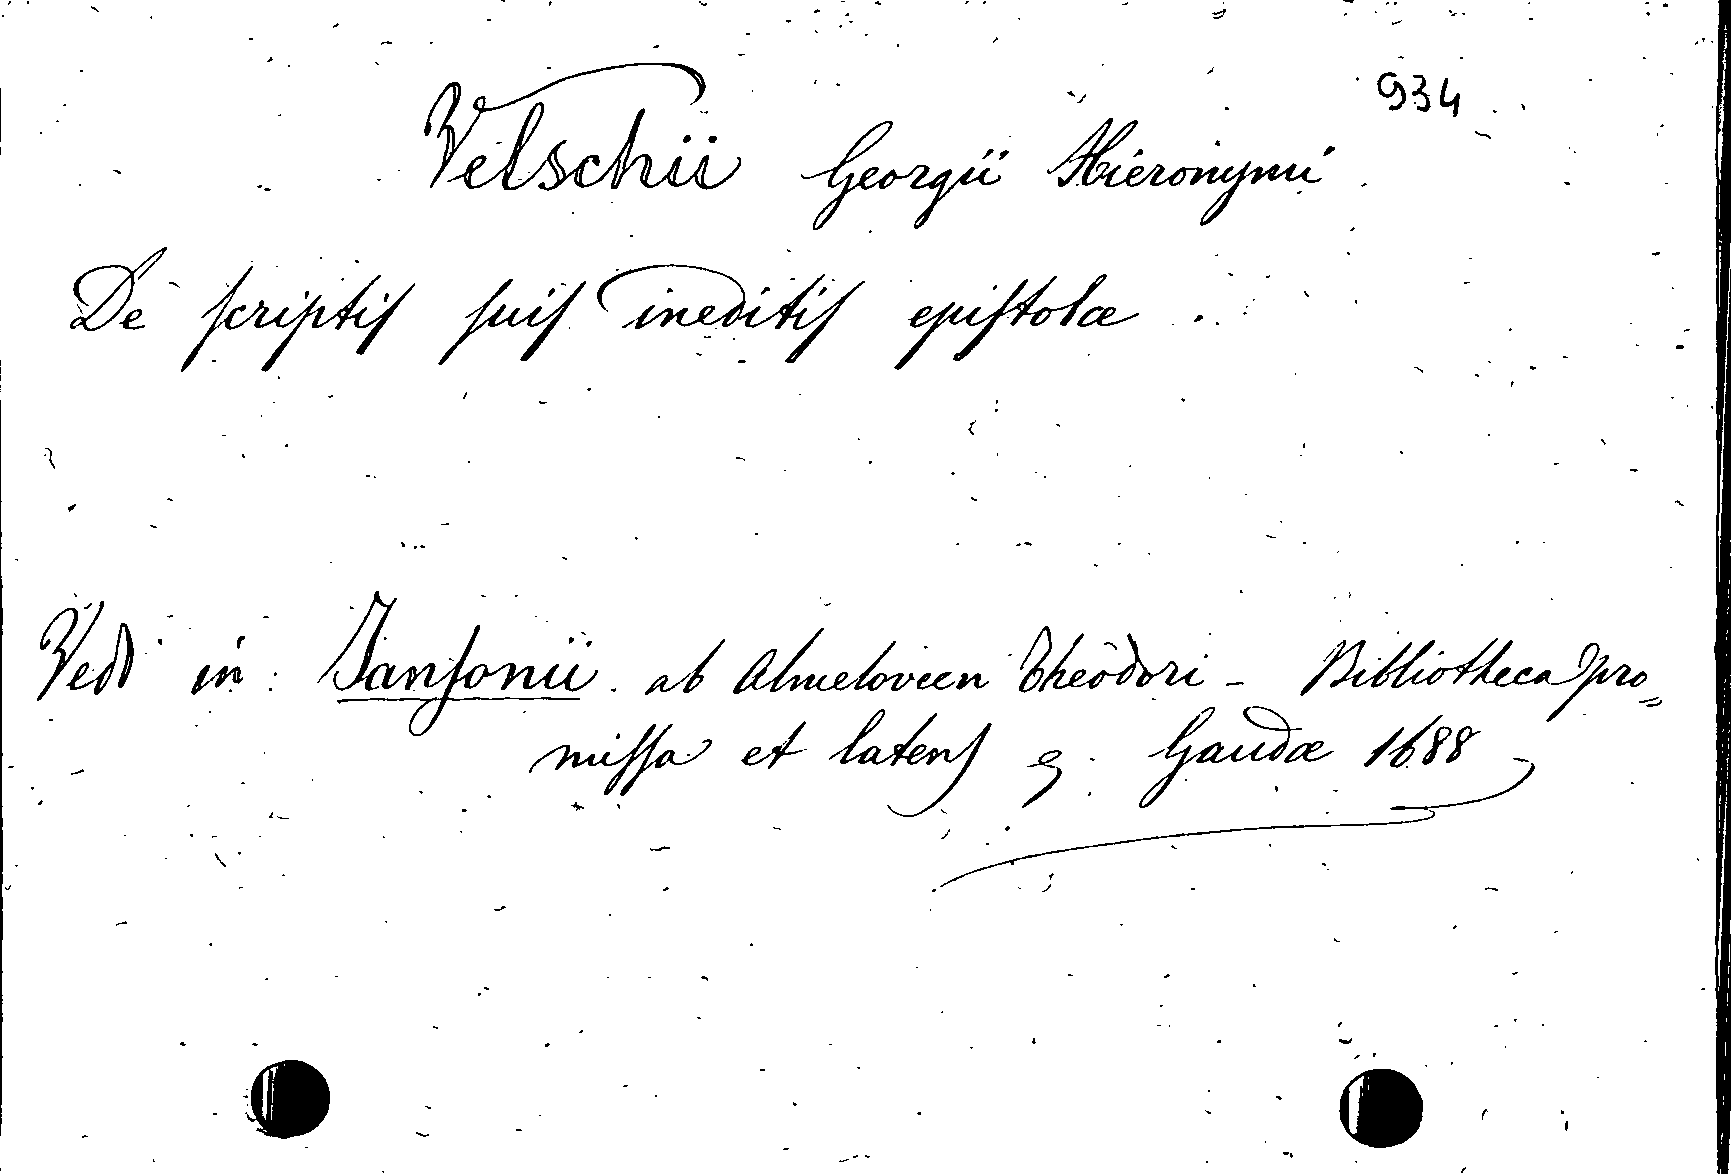 934
Velschii Georgii Hieronymi
De scriptis suis ineditis epistolæ.
Vedi in: Jansonii ab Almeloveen Theodori - Bibliotheca pro=
missa et latens &. Gaudæ 1688